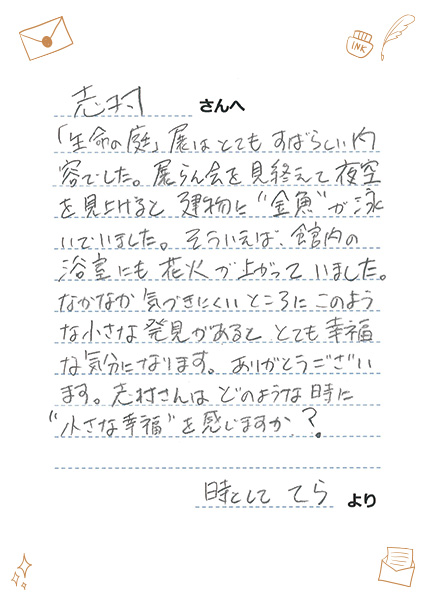 INK
志村 さんへ
「生命の庭」展はとてもすばらしい内
容でした。展らん会を見終えて夜空
を見上げると 建物に“金魚”が泳
いでいました。そういえば、館内の
浴室にも花火が上がっていました。
なかなか気づきにくいところにこのよう
な小さな発見があると とても幸福
な気分になります。ありがとうござい
ます。志村さんはどのような時に
“小さな幸福”を感じますか？
時として てら より